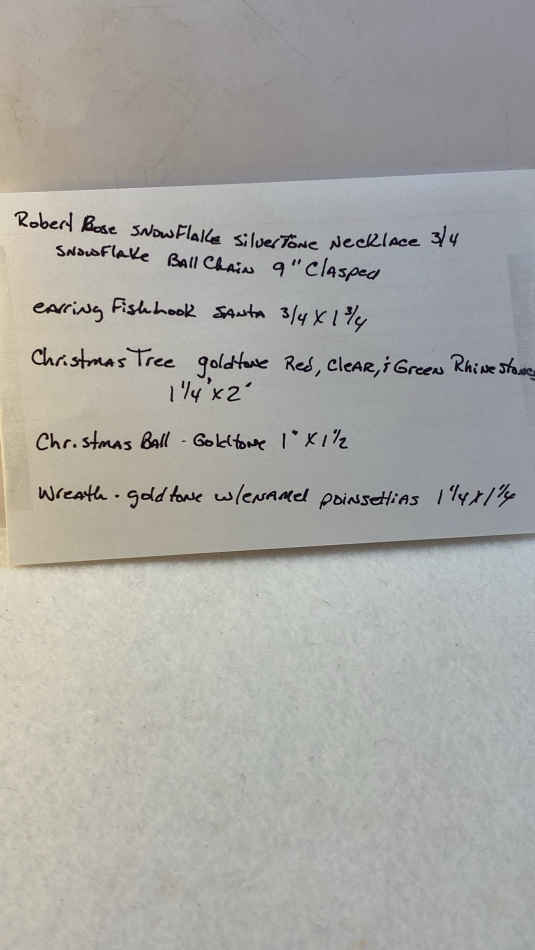 Robert Rose SNowFlake SilverTone Necklace 3/4
SNowFlake Ball Chain 9" Clasped
earring Fishhook SANta 3/4 X 1 3/4
Christmas Tree goldtone Red, Clear, & Green Rhinestones
1 1/4" x 2"
Christmas Ball - Goldtone 1" X 1 1/2
Wreath - goldtone w/enamel poinsettias 1 1/4 X 1 1/4